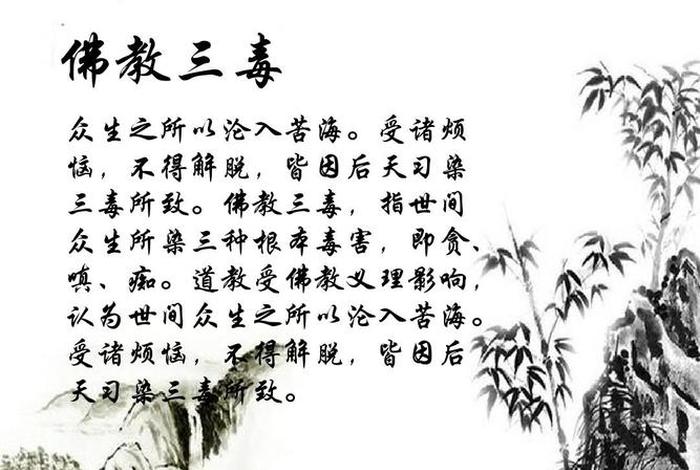 佛教三毒
众生之所以沦入苦海。受诸烦
恼，不得解脱，皆因后天习染
三毒所致。佛教三毒，指世间
众生所染三种根本毒害，即贪、
嗔、痴。道教受佛教义理影响，
认为世间众生之所以沦入苦海。
受诸烦恼，不得解脱，皆因后
天习染三毒所致。